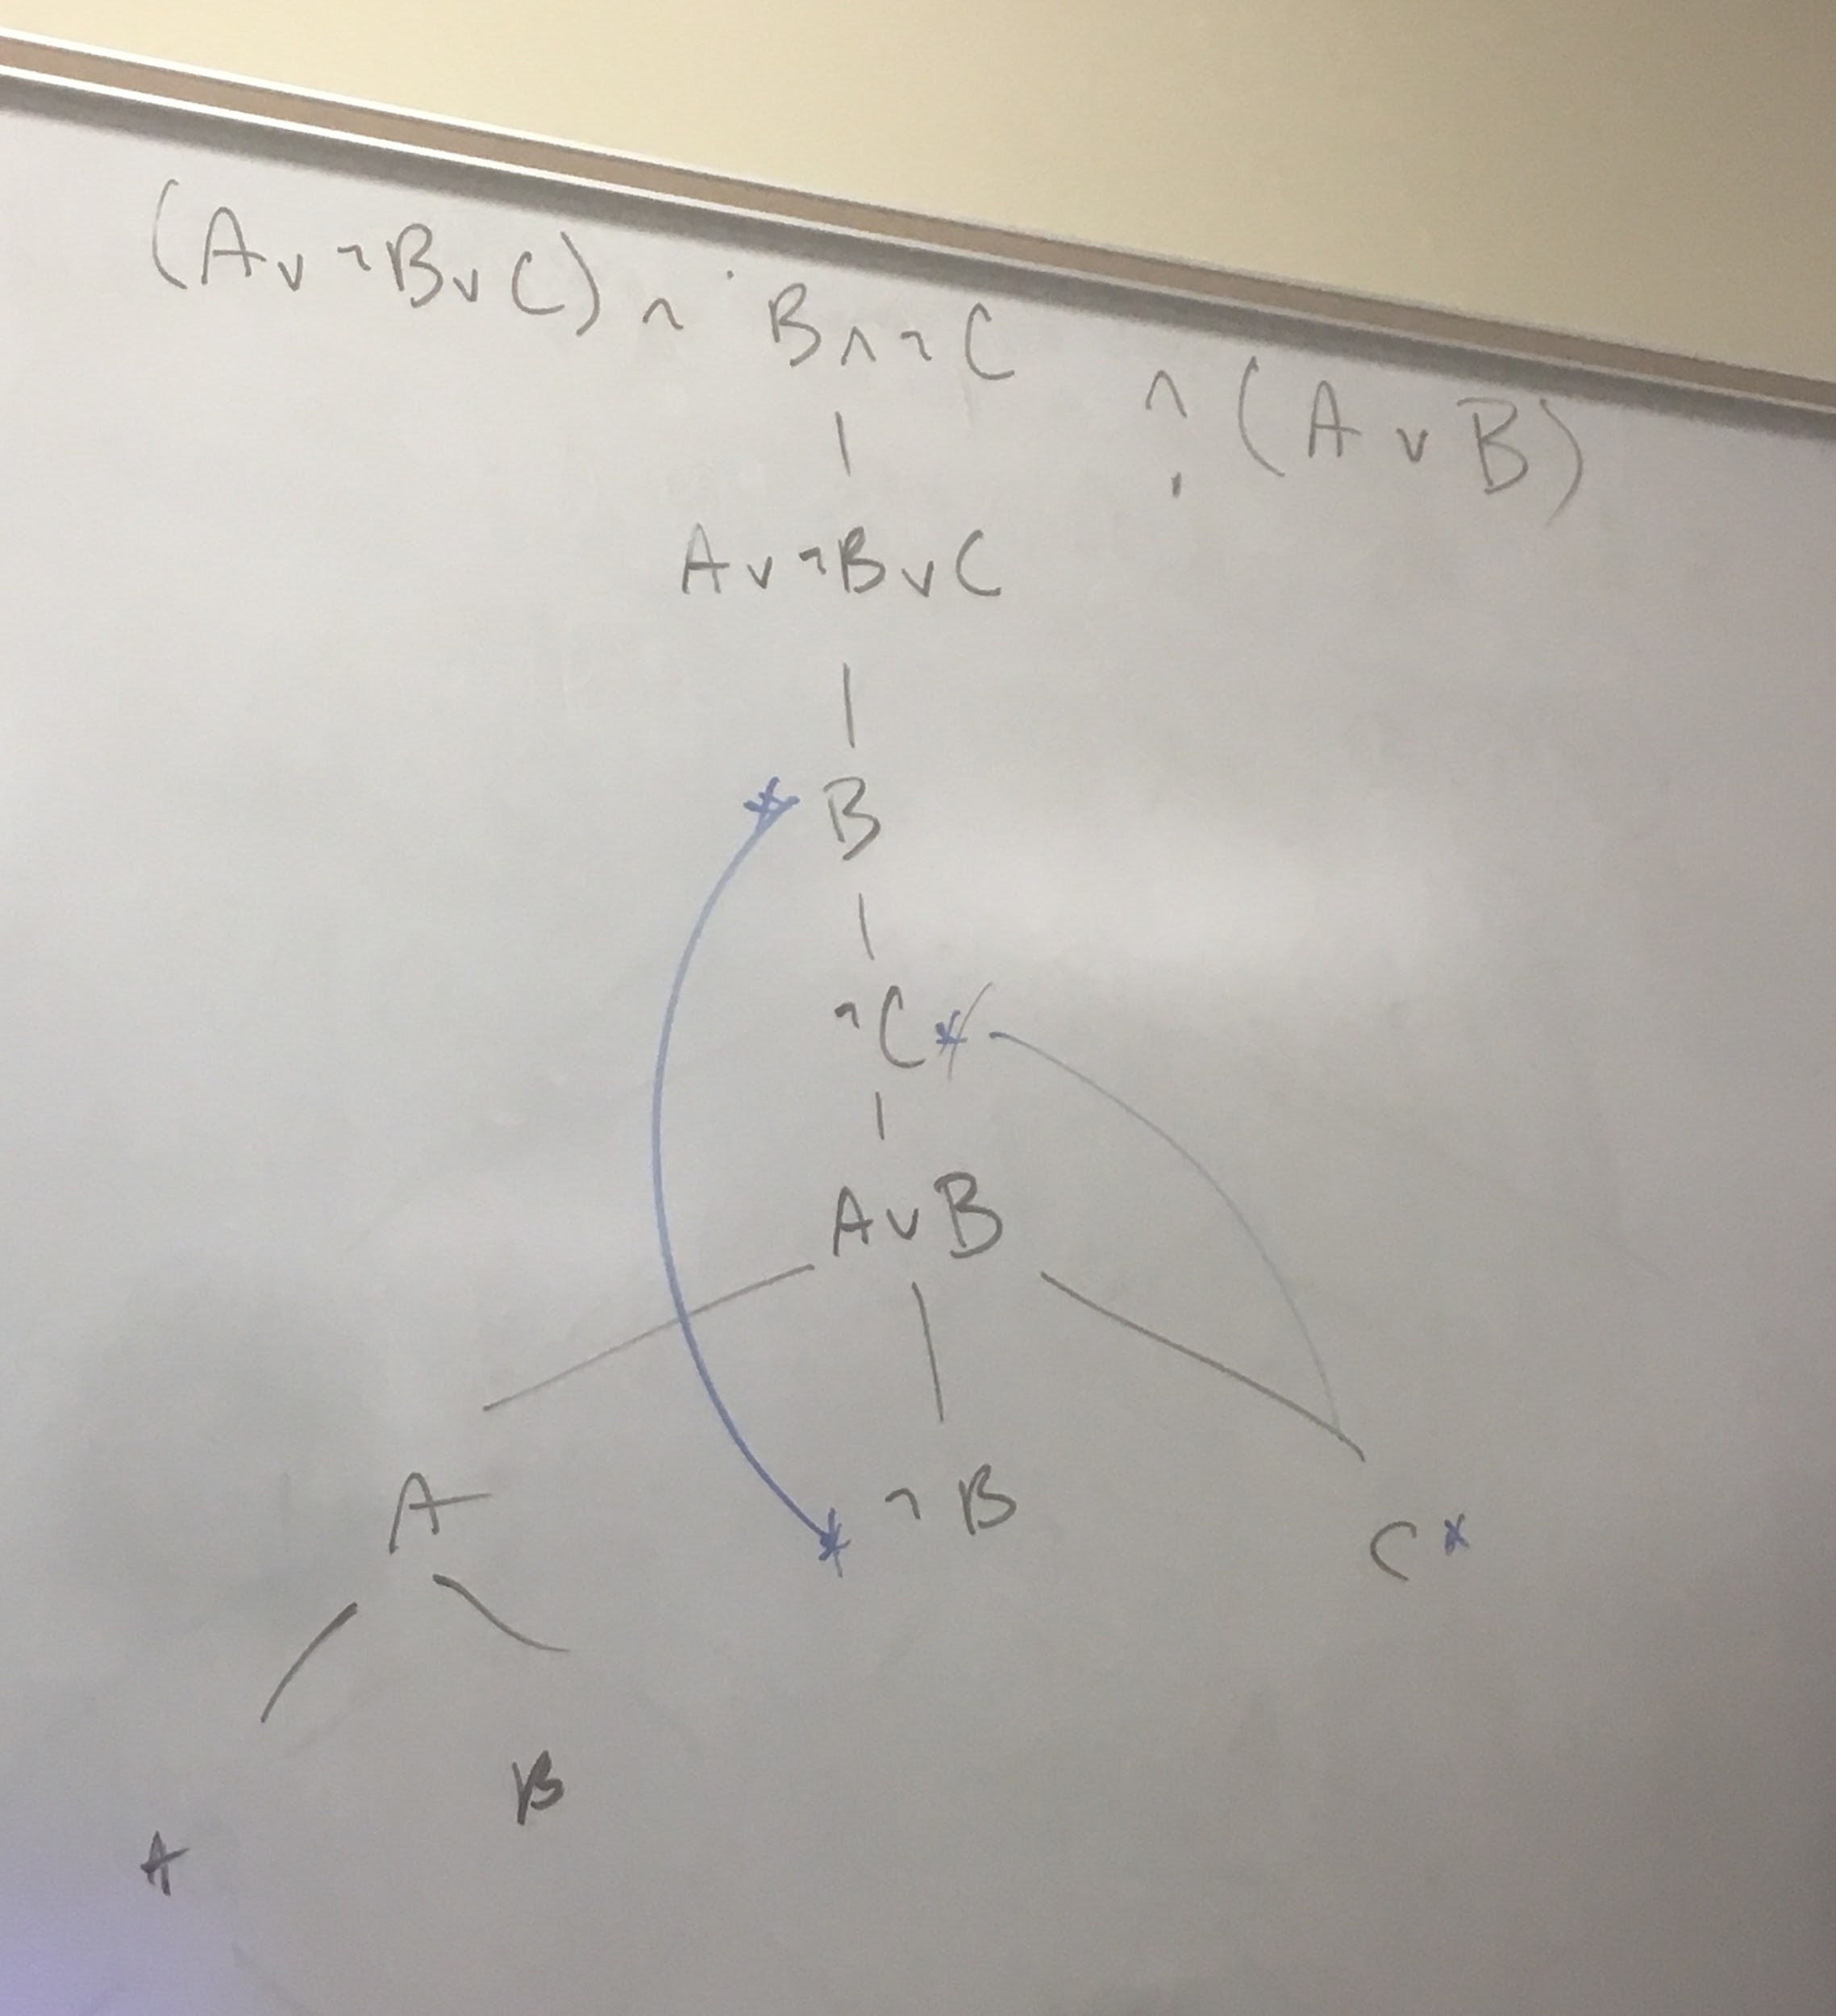 (A ∨ ¬B ∨ C) ∧ B ∧ ¬C ∧ (A ∨ B)
A ∨ ¬B ∨ C
* B
¬C *
A ∨ B
A * ¬B C *
A B